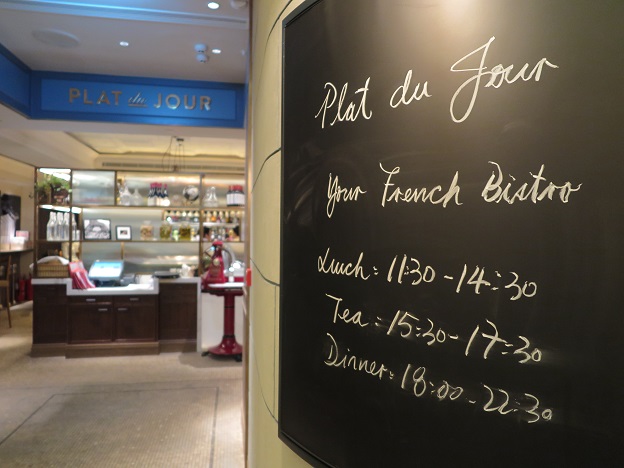 PLAT du JOUR
Plat du Jour
Your French Bistro
Lunch: 11:30 - 14:30
Tea: 15:30 - 17:30
Dinner: 18:00 - 22:30